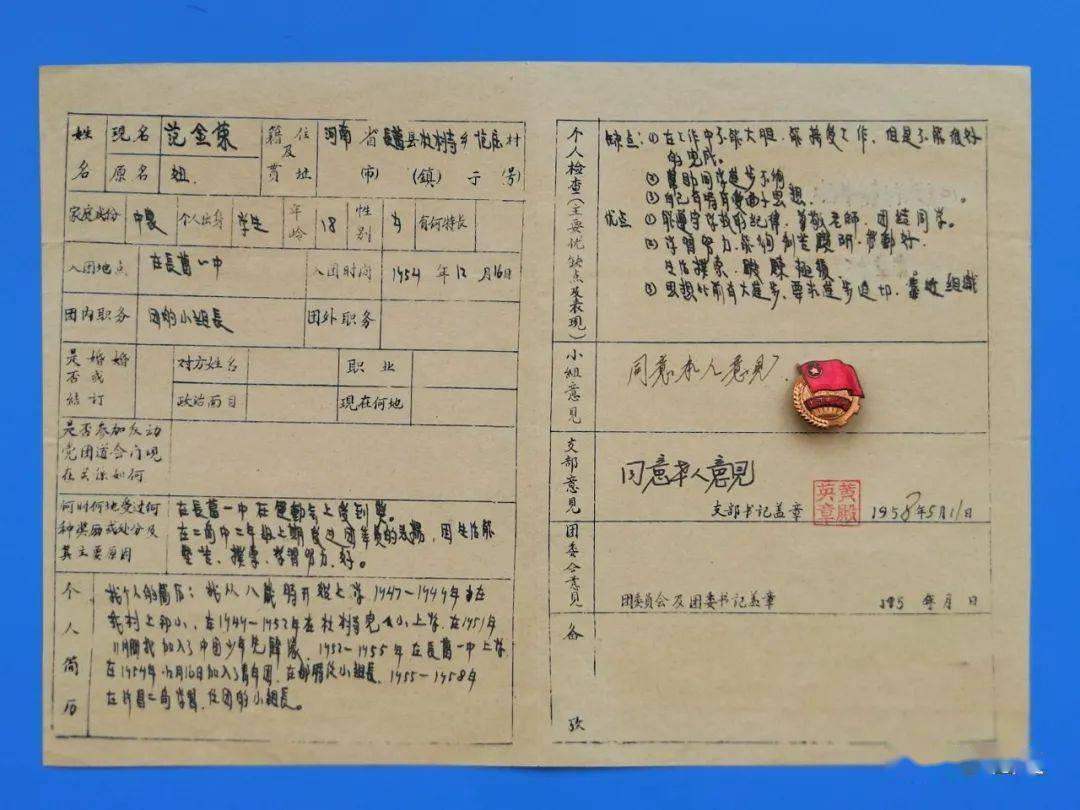 姓名 现名 范金棟 籍贯及住址 河南省長葛县杜村寺乡范店村
原名 (市) (镇) 子 (号)
家庭成份 中農 个人出身 学生 年岭 18 性别 有何特长
入团地点 在長葛一中 入团时间 1954 年 12 月16日
团内职务 团的小組長 团外职务
是否结婚或訂婚 对方姓名 职业
政治面目 现在何地
是否参加反动
党团道会门现
在关係如何
何时何地受过何 在長葛一中在運動会上受到奖。
种奖励或处分及 在二高中二年級上期受过团委員的表揚,因生活
其主要原因 樸素,学習努力,好。
个人简历
我个人的簡历:我从八歲時开始上学 1947-1949年在
我村上初小,在1949-1952年在杜村寺完小上学,在1951年
11月我加入了中国少年先鋒隊,1952-1955年在長葛一中上学,
在1954年12月16日加入了青年团,在部門任小組長,1955-1958年
在許昌二高学習,任团的小組長。
个人检查(主要优缺点及表现)
缺点:①在工作中不够大胆,工作,但是不能很好
的完成。
②幫助同学進步不够
③自己有時有東西思想
优点 ①能遵守学校的紀律,尊敬老師,团結同学。
②学習努力,刻苦鑽研,劳動好,
生活樸素,積極。
③思想比前有大進步,要求進步迫切,靠近組織
小组意见 同意本人意見
支部意见 同意本人意見
支部书记盖章 黄殿英章 1958年5月11日
团委会意见
团委員会及团委书记盖章 195 年 月 日
备
攷